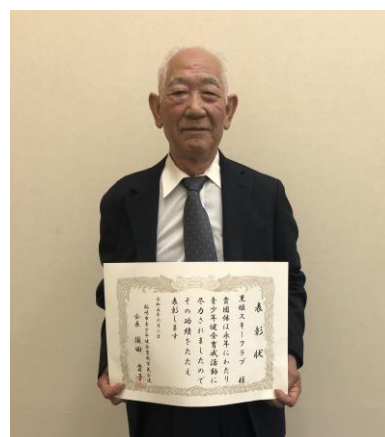 表彰状
黒姫スキークラブ 様
貴団体は永年にわたり
青少年健全育成活動に
尽力されましたので
その功績をたたえ
表彰します
柏崎市青少年健全育成市民会議
会長 飯田 貴子